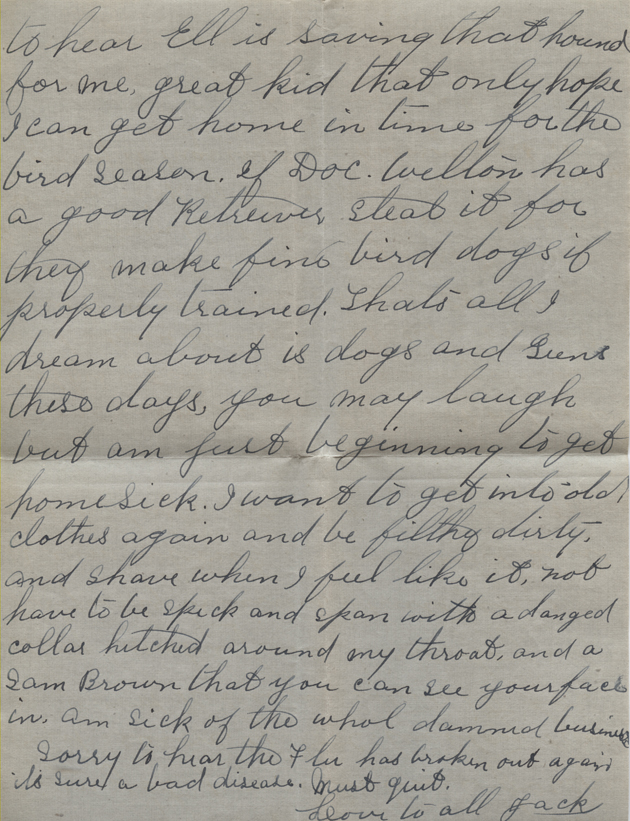 to hear Ell is saving that hound
for me, great kid that only hope
I can get home in time for the
bird season. If Doc. Wellon has
a good Retreiver steal it for
they make fine bird dogs if
properly trained. Thats all I
dream about is dogs and Guns
these days, you may laugh
but am just beginning to get
homesick. I want to get into old
clothes again and be filthy dirty,
and shave when I feel like it, not
have to be spick and span with a danged
collar hitched around my throat, and a
Sam Brown that you can see your face
in. Am sick of the whol damned business
Sorry to hear the Flu has broken out again
its sure a bad disease. Must quit.
Love to all Jack